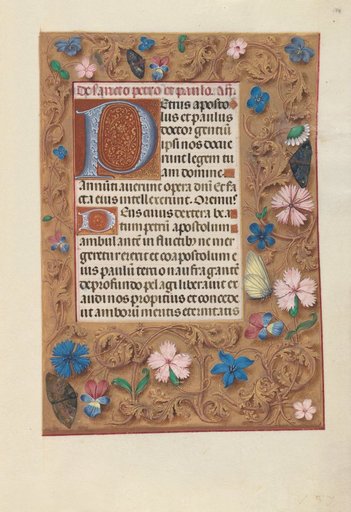 De sancto petro et paulo. añ.
Petrus aposto
lus et paulus
doctor gentiū
ipsi nos docue
runt legem tu
am domine.
Annūtiauerunt opera dnī et fa
cta eius intellexerunt. Oremus
Deus cuius dextera bea
tum petrū apostolum
ambulantē in fluctibꝫ ne mer
geretur erexit et coapostolum e
ius paulū tertio naufragantē
de profundo pelagi liberauit ex
audi nos propitius et concede
ut amborū meritis eternitatis